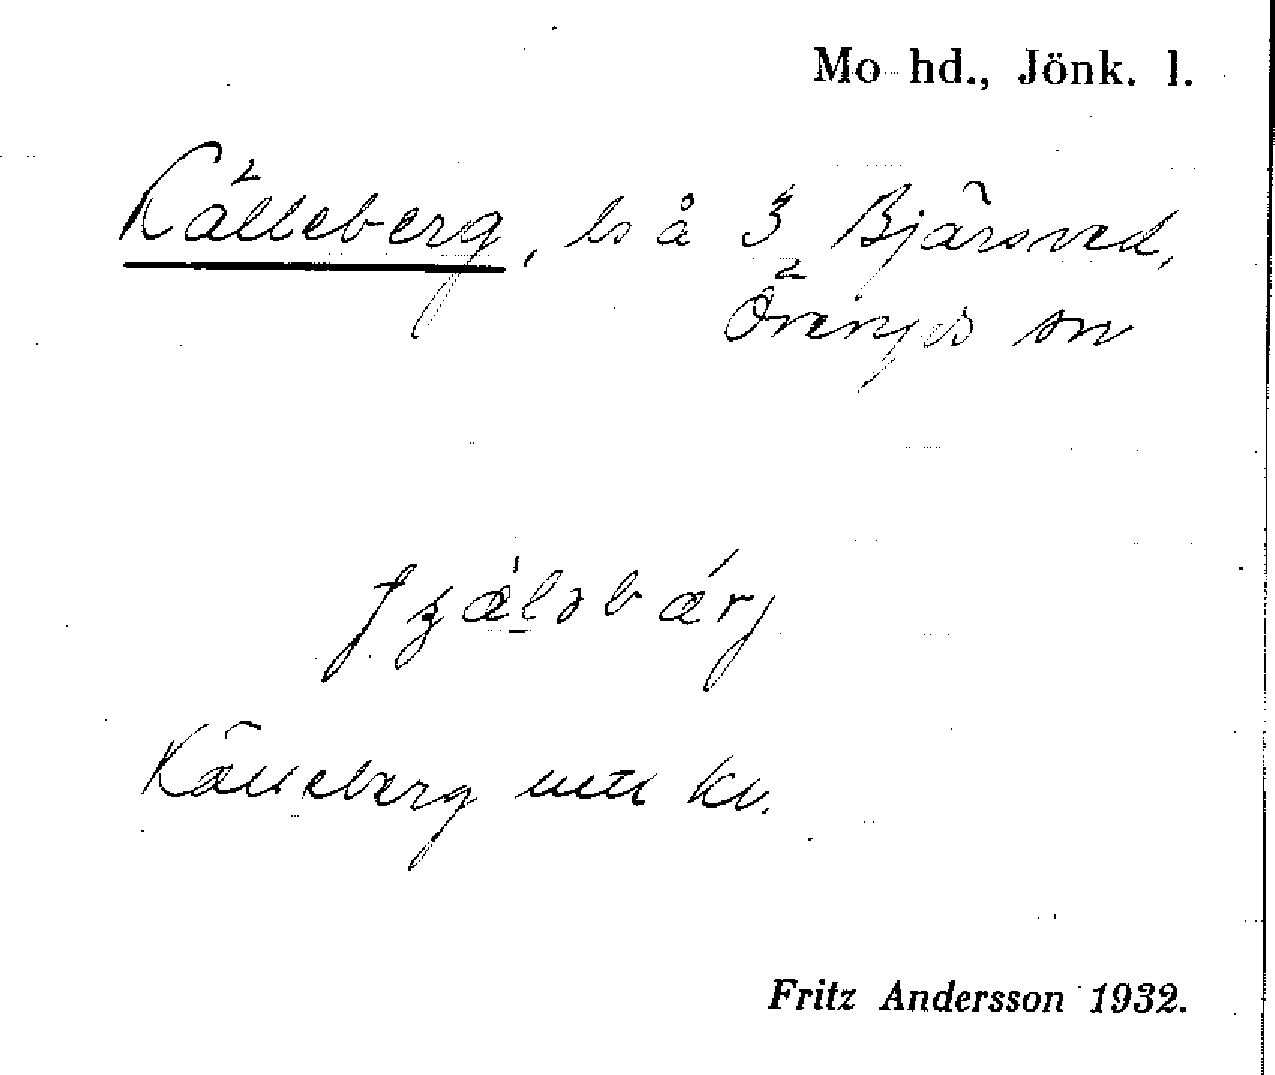 Mo hd., Jönk. l.
Källeberg, ls å 3 Bjärsved,
Öreryds sn
Källeberg uttl kv.
Fritz Andersson 1932.